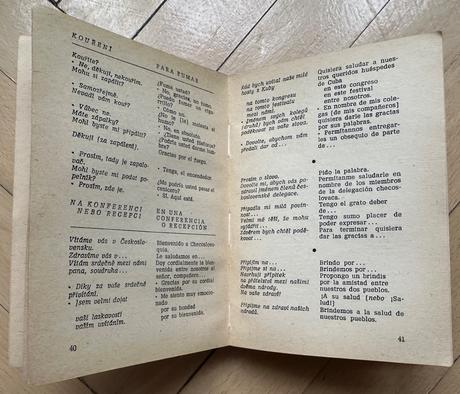 KOUŘENÍ
Kouříte?
- Ne, děkuji, nekouřím.
Mohu si zapálit?
- Samozřejmě.
Nevadí vám kouř?
- Vůbec ne.
Máte zápalky?
Mohl byste mi připálit?
Děkuji (za zapálení).
- Prosím, tady je zapalovač.
Mohl byste mi podat popelník?
- Prosím, zde je.
NA KONFERENCI
NEBO RECEPCI
Vítáme vás v Československu.
Zdravíme vás v ...
Vítám srdečně mezi námi
pana, soudruha ...
- Díky za vaše srdečné
přivítání.
- Jsem velmi dojat
vaší laskavostí
vaším uvítáním.
40
PARA FUMAR
¿Fuma usted?
- No, gracias, no fumo.
- Cómo no.
- No, en absoluto.
¿Tiene usted cerillas?
Gracias por el fuego.
- Tenga, el encendedor.
¿Me podría usted pasar el
cenicero?
- Sí. Aquí está.
EN UNA
CONFERENCIA
O RECEPCIÓN
Bienvenido a Checoslovaquia.
Le saludamos en...
Doy cordialmente la bienvenida
entre nosotros al
señor, compañero...
- Gracias por su cordial
bienvenida.
- Me siento muy emocionado
por su bondad
por su bienvenida.
Rád bych uvítal naše milé
hosty z Kuby
na tomto kongresu
na tomto festivalu
mezi námi.
- Jménem svých kolegů
[druhů] bych vám chtěl
poděkovat za vaše slova.
- Dovolte, abychom vám
předali dar od ...
Prosím o slovo.
Dovolte mi, abych vás pozdravil
jménem členů československé
delegace.
Připadla mi milá povinnost ...
Velmi mě těší, že mohu
vyjádřit ...
Závěrem bych chtěl poděkovat ...
Připíjím na ...
Připijme si na ...
Navrhuji přípitek
na přátelství mezi našimi
dvěma národy.
Na vaše zdraví!
Připijme na zdraví našich
národů.
Quisiera saludar a nuestros
queridos huéspedes
de Cuba
en este congreso
en este festival
entre nosotros.
- En nombre de mis colegas
[de mis compañeros]
quisiera darle las gracias
por sus palabras.
- Permítannos entregarles
un obsequio de parte
de...
Pido la palabra.
Permítanme saludarle en
nombre de los miembros
de la delegación checoslovaca.
Tengo el grato deber
de...
Tengo sumo placer de
poder expresar...
Para terminar quisiera
dar las gracias a...
Brindo por...
Brindemos por...
Propongo un brindis
por la amistad entre
nuestros dos pueblos.
¡A su salud (nebo ¡Salud!)
Brindemos a la salud de
nuestros pueblos.
41